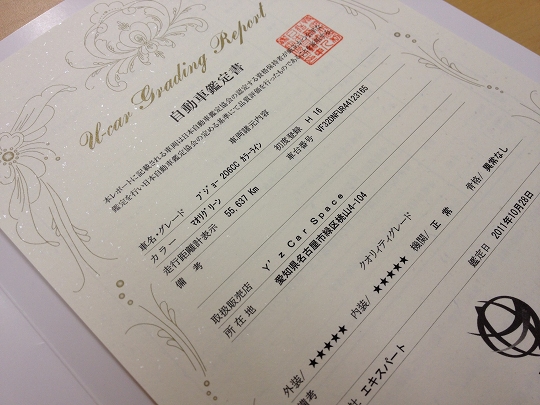 U-car Grading Report
自動車鑑定書
本レポートに記載される車両は日本自動車鑑定協会の認定する資格保持者が
鑑定を行い日本自動車鑑定協会の定める基準にて品質評価を行ったものである
車両諸元内容
車名・グレード プジョー206CC カラーライン
初度登録 H 16
カラー マオリグリーン
車台番号
走行距離計表示 55,637 Km
備考
取扱販売店 Y'z Car Space
所在地 愛知県名古屋市緑区桃山4-104
クオリティグレード
外装/ ★★★★★ 内装/ ★★★★★ 機関/ 正常 骨格/ 異常なし
備考
エキスパート
鑑定日 2011年10月28日